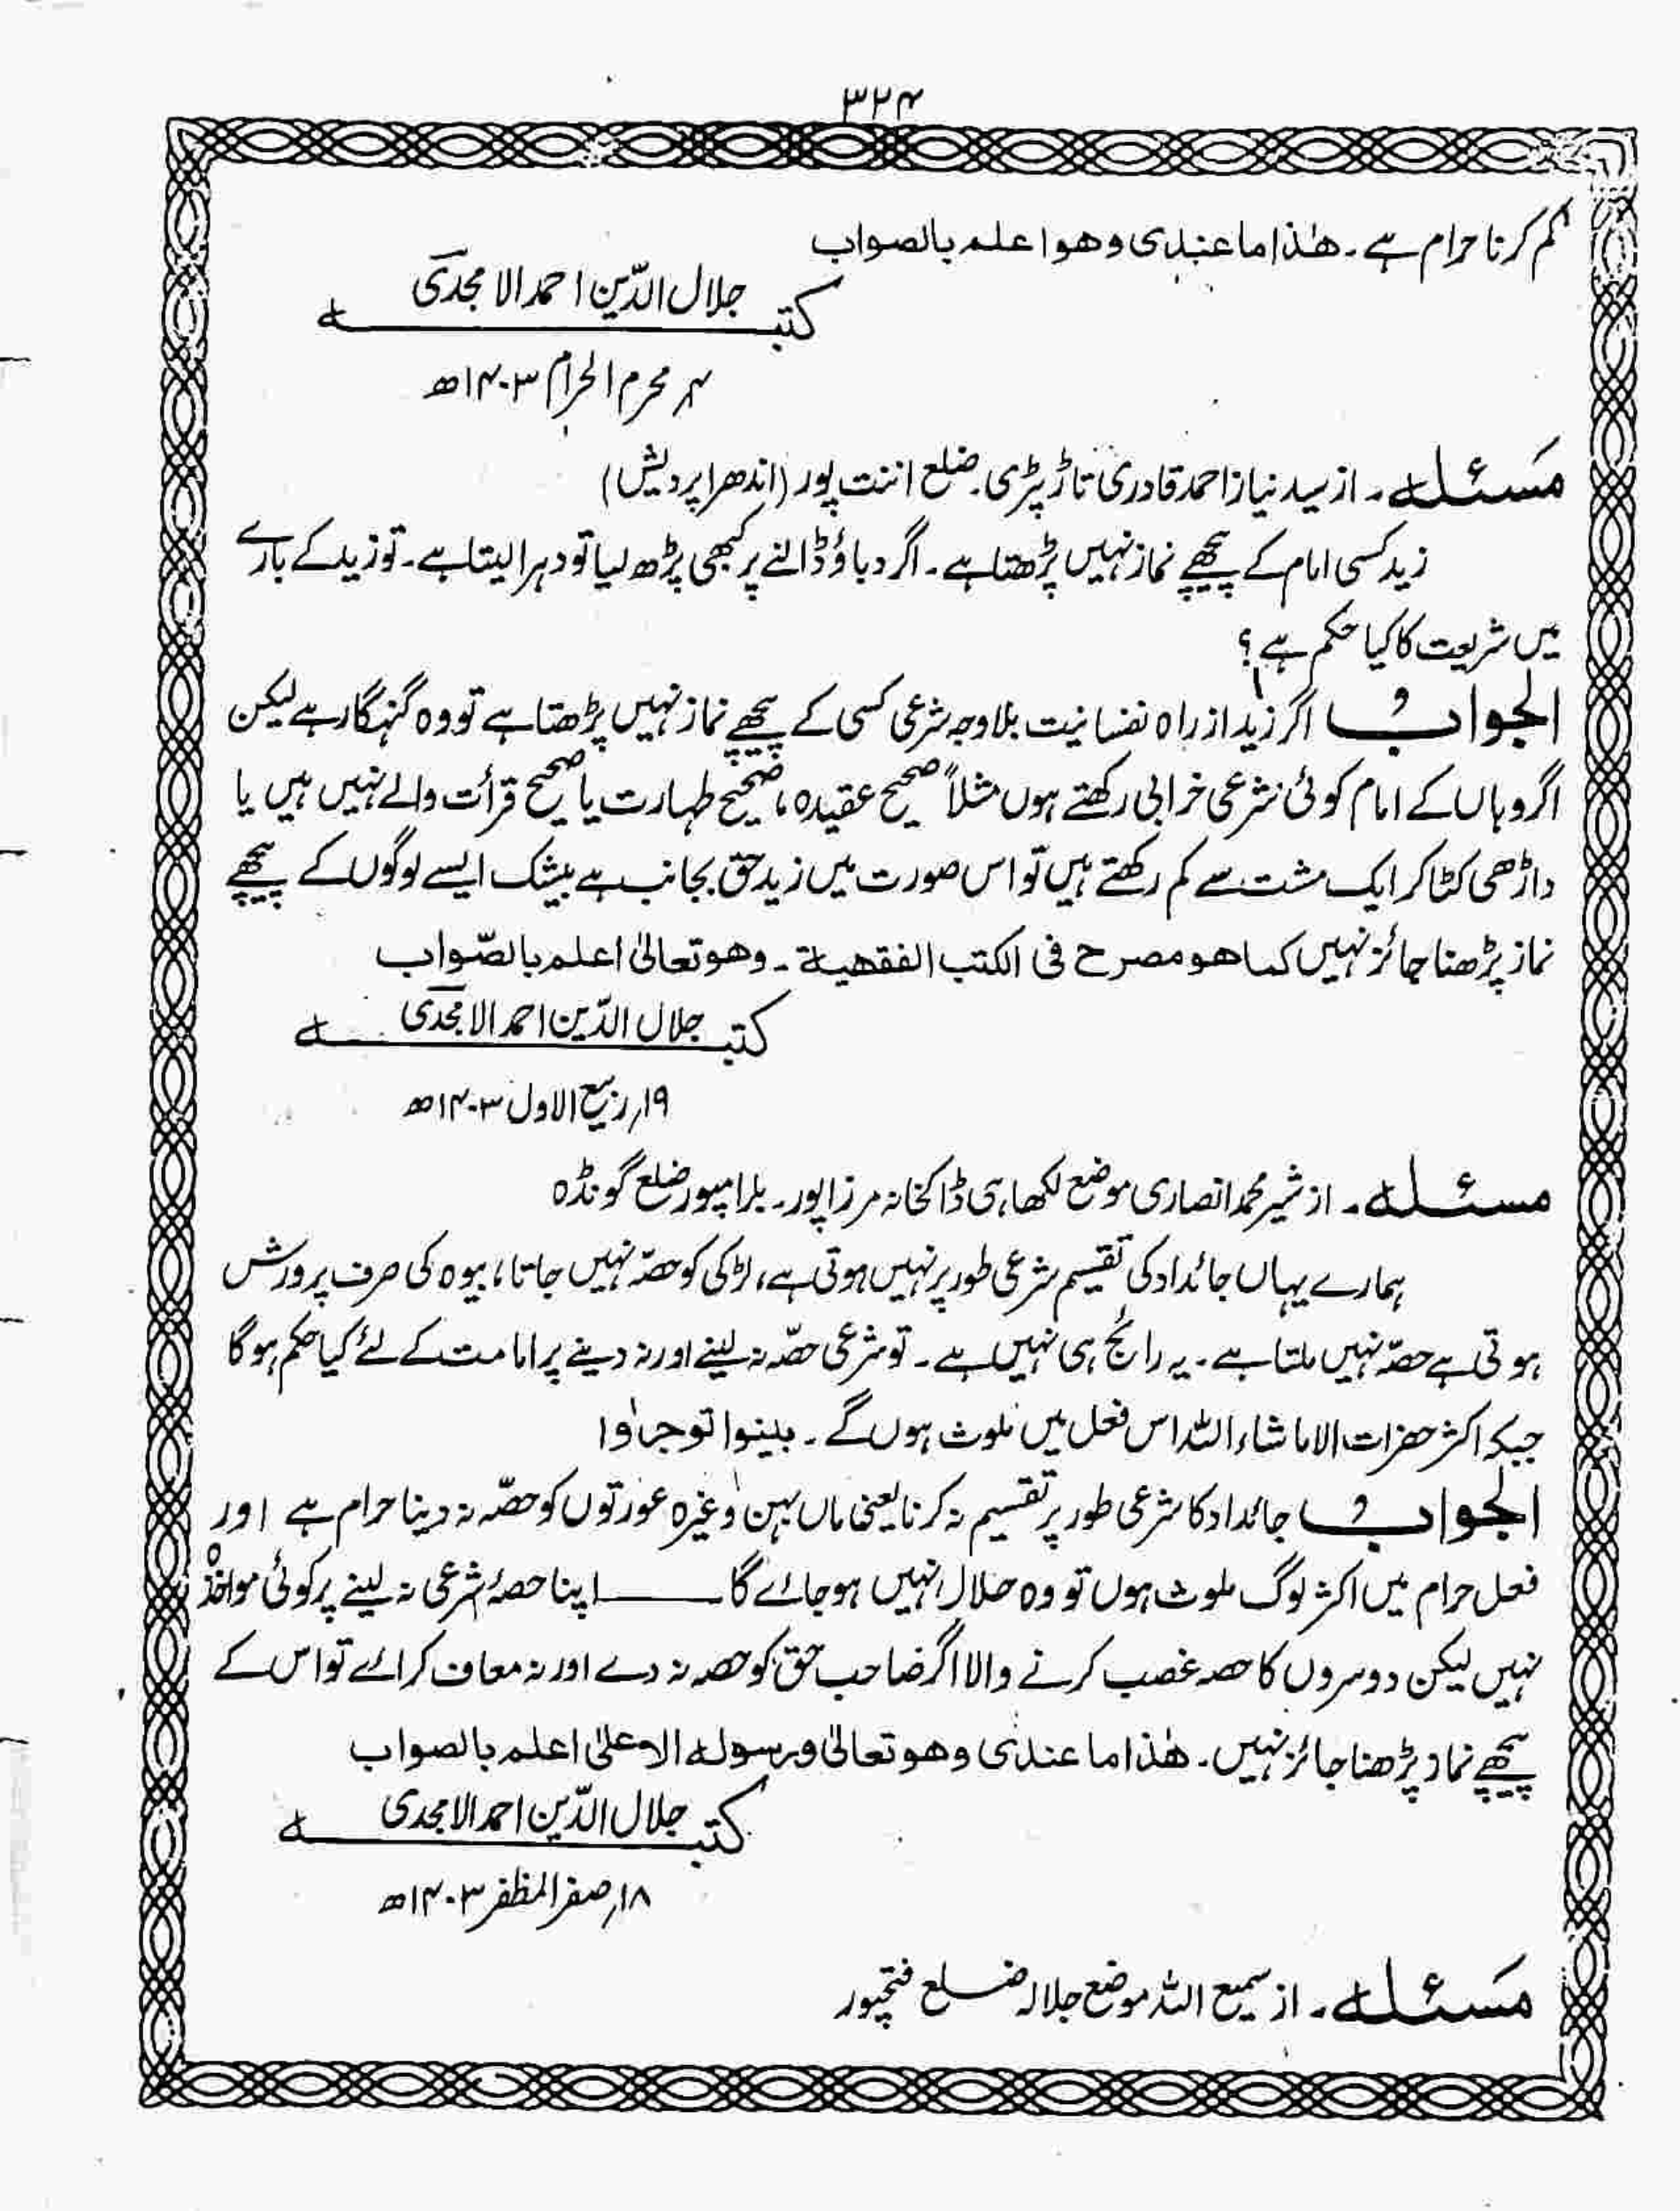 ۳۲۴
کم کرنا حرام ہے۔ ھٰذا ما عندی وھوا علم بالصواب
کتبہ جلال الدّین احمد الامجدی
۴؍ محرم الحرام ۱۴۰۳ھ
مَسئلہ۔ از سید نیاز احمد قادری تاڑپڑی۔ ضلع اننت پور (اندھرا پردیش)
زید کسی امام کے پیچھے نماز نہیں پڑھتا ہے۔ اگر دباؤ ڈالنے پر کبھی پڑھ لیا تو دہرا لیتا ہے۔ تو زید کے بارے
میں شریعت کا کیا حکم ہے؟
الجواب اگر زید از راہ نفسانیت بلا وجہ شرعی کسی کے پیچھے نماز نہیں پڑھتا ہے تو وہ گنہگار ہے لیکن
اگر وہاں کے امام کوئی شرعی خرابی رکھتے ہوں مثلاً صحیح عقیدہ، صحیح طہارت یا صحیح قرأت والے نہیں ہیں یا
داڑھی کٹا کر ایک مشت سے کم رکھتے ہیں تو اس صورت میں زید حق بجانب ہے بیشک ایسے لوگوں کے پیچھے
نماز پڑھنا جائز نہیں کما ھو مصرح فی الکتب الفقھیۃ۔ وھو تعالیٰ اعلم بالصّواب
کتبہ جلال الدّین احمد الامجدی
۱۹؍ ربیع الاول ۱۴۰۳ھ
مسئلہ۔ از شیر محمد انصاری موضع لکھاہی ڈاکخانہ مرزاپور۔ بلرامپور ضلع گونڈہ
ہمارے یہاں جائداد کی تقسیم شرعی طور پر نہیں ہوتی ہے، لڑکی کو حصّہ نہیں جاتا، بیوہ کی صرف پرورش
ہوتی ہے حصّہ نہیں ملتا ہے۔ یہ رائج ہی نہیں ہے۔ تو شرعی حصّہ نہ لینے اور نہ دینے پر امامت کے لئے کیا حکم ہوگا
جبکہ اکثر حضرات الا ماشاء اللہ اس فعل میں ملوث ہوں گے۔ بینوا توجروا
الجواب جائداد کا شرعی طور پر تقسیم نہ کرنا یعنی ماں بہن وغیرہ عورتوں کو حصّہ نہ دینا حرام ہے اور
فعل حرام میں اکثر لوگ ملوث ہوں تو وہ حلال نہیں ہوجائے گا ـــــــ اپنا حصۂ شرعی نہ لینے پر کوئی مواخذہ
نہیں لیکن دوسروں کا حصہ غصب کرنے والا اگر صاحب حق کو حصہ نہ دے اور نہ معاف کرائے تو اس کے
پیچھے نماز پڑھنا جائز نہیں۔ ھٰذا ما عندی وھو تعالیٰ ورسولہ الاعلیٰ اعلم بالصواب
کتبہ جلال الدّین احمد الامجدی
۱۸؍ صفر المظفر ۱۴۰۳ھ
مَسئلہ۔ از سمیع اللہ موضع جلالہ ضلع فتحپور